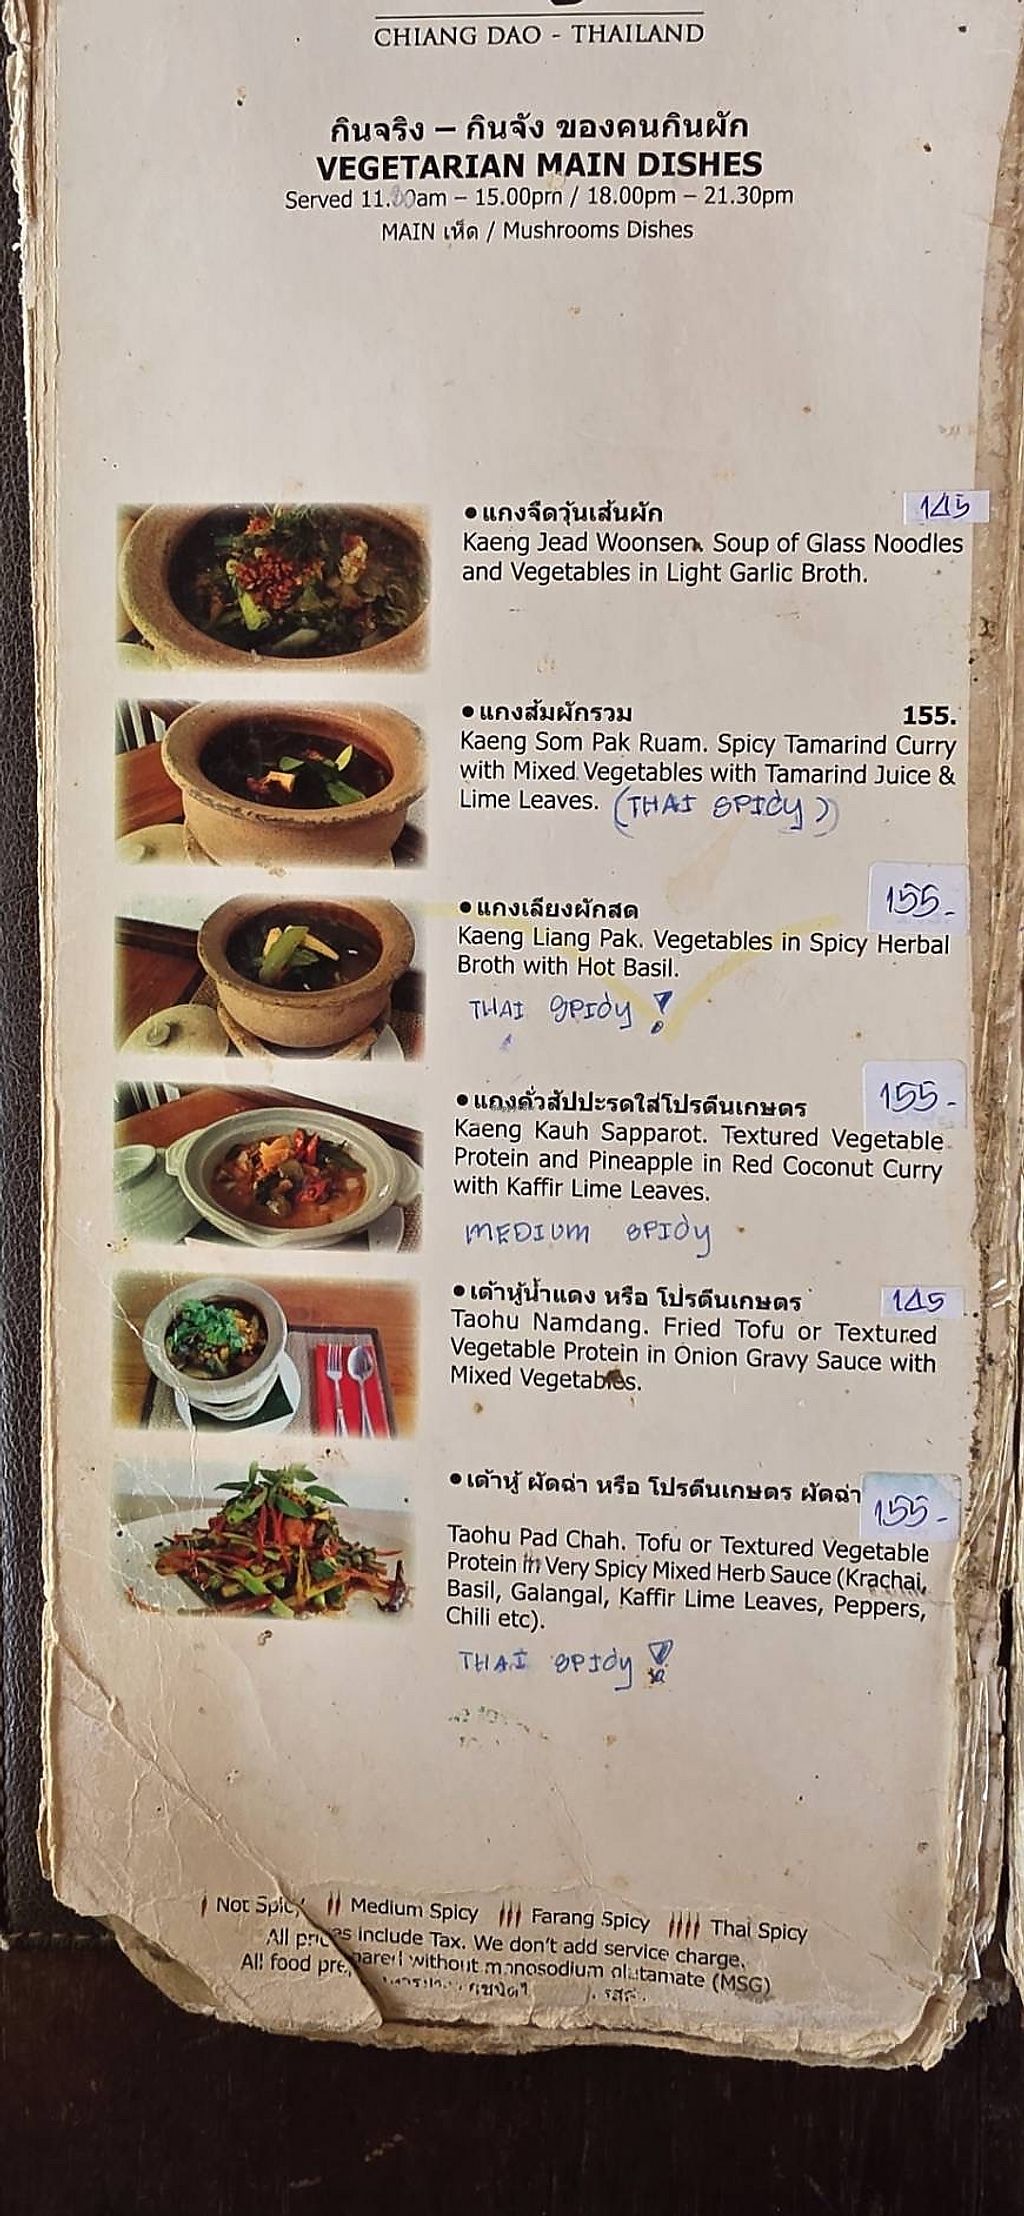 CHIANG DAO - THAILAND
กินจริง – กินจัง ของคนกินผัก
VEGETARIAN MAIN DISHES
Served 11.00am – 15.00pm / 18.00pm – 21.30pm
MAIN เห็ด / Mushrooms Dishes
• แกงจืดวุ้นเส้นผัก 145
Kaeng Jead Woonsen. Soup of Glass Noodles
and Vegetables in Light Garlic Broth.
• แกงส้มผักรวม 155.
Kaeng Som Pak Ruam. Spicy Tamarind Curry
with Mixed Vegetables with Tamarind Juice &
Lime Leaves. (THAI SPICY)
• แกงเลียงผักสด 155-
Kaeng Liang Pak. Vegetables in Spicy Herbal
Broth with Hot Basil.
THAI SPICY !
• แกงคั่วสัปปะรดใส่โปรตีนเกษตร 155-
Kaeng Kauh Sapparot. Textured Vegetable
Protein and Pineapple in Red Coconut Curry
with Kaffir Lime Leaves.
MEDIUM SPICY
• เต้าหู้น้ำแดง หรือ โปรตีนเกษตร 145
Taohu Namdang. Fried Tofu or Textured
Vegetable Protein in Onion Gravy Sauce with
Mixed Vegetables.
• เต้าหู้ ผัดฉ่า หรือ โปรตีนเกษตร ผัดฉ่า 155-
Taohu Pad Chah. Tofu or Textured Vegetable
Protein in Very Spicy Mixed Herb Sauce (Krachai,
Basil, Galangal, Kaffir Lime Leaves, Peppers,
Chili etc).
THAI SPICY !
Not Spicy Medium Spicy Farang Spicy Thai Spicy
All prices include Tax. We don't add service charge.
All food prepared without monosodium glutamate (MSG)